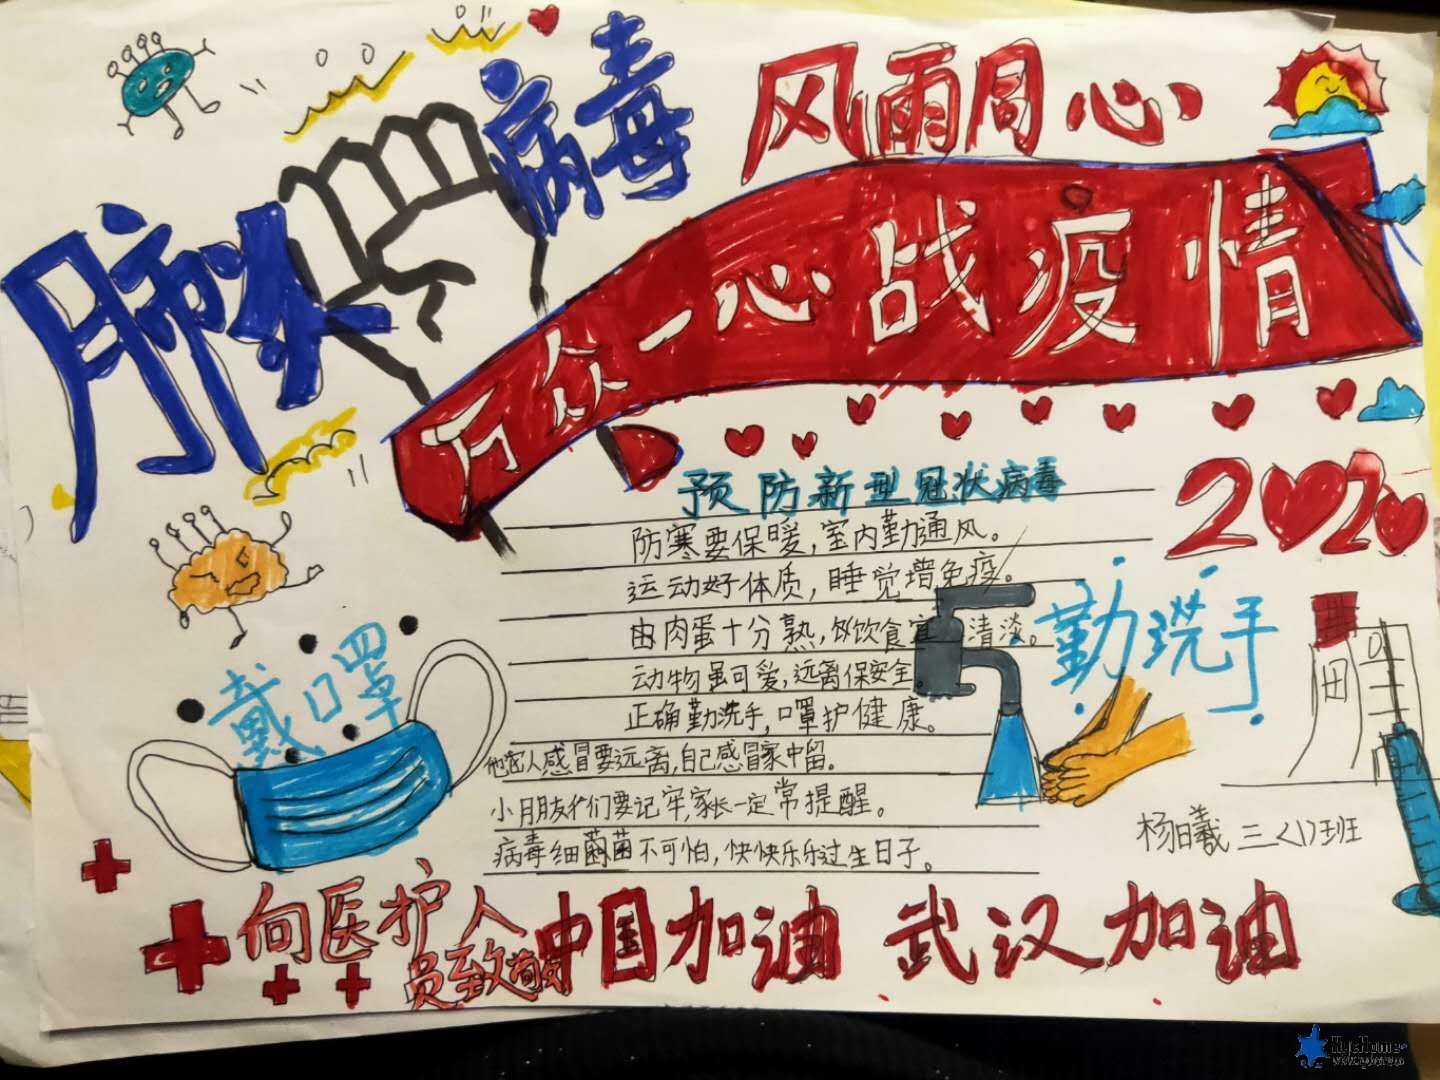 肺炎
病毒
风雨同心
万众一心战疫情
2020
预防新型冠状病毒
防寒要保暖，室内勤通风。
运动好体质，睡觉增免疫。
由肉蛋十分熟，饮食宜清淡。
动物虽可爱，远离保安全。
正确勤洗手，口罩护健康。
他人感冒要远离，自己感冒家中留。
小朋友们要记牢，家长一定常提醒。
病毒细菌不可怕，快快乐乐过生日子。
戴口罩
勤洗手
杨曦 三<1>班
向医护人
员致敬
中国加油 武汉加油